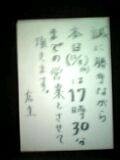 誠に勝手ながら
本日(12/31)は
17時30分
までの営業とさせて
頂きます。
店主